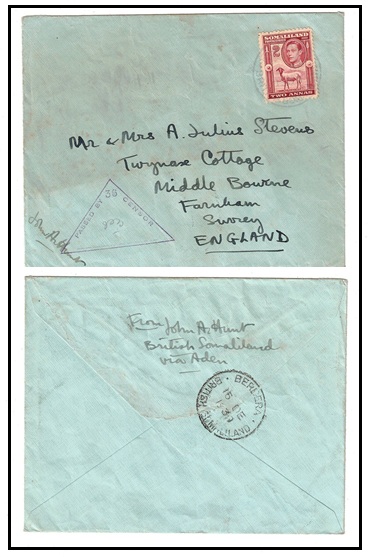 SOMALILAND
2
TWO ANNAS
Mr & Mrs A. Julius Stevens
Twynax Cottage
Middle Bourne
Farnham
Surrey
ENGLAND
PASSED BY 38 CENSOR
From John A. Hunt
British Somaliland
via Aden
BERBERA · BRITISH SOMALILAND
15 DE
39